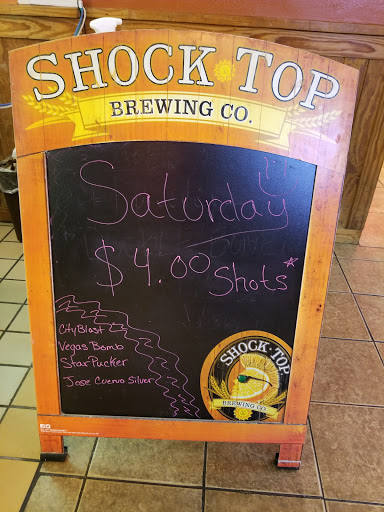 SHOCK TOP
BREWING CO.
Saturday
$4.00 Shots*
City Blast
Vegas Bomb
Star Pucker
Jose Cuervo Silver
SHOCK TOP
BREWING CO.